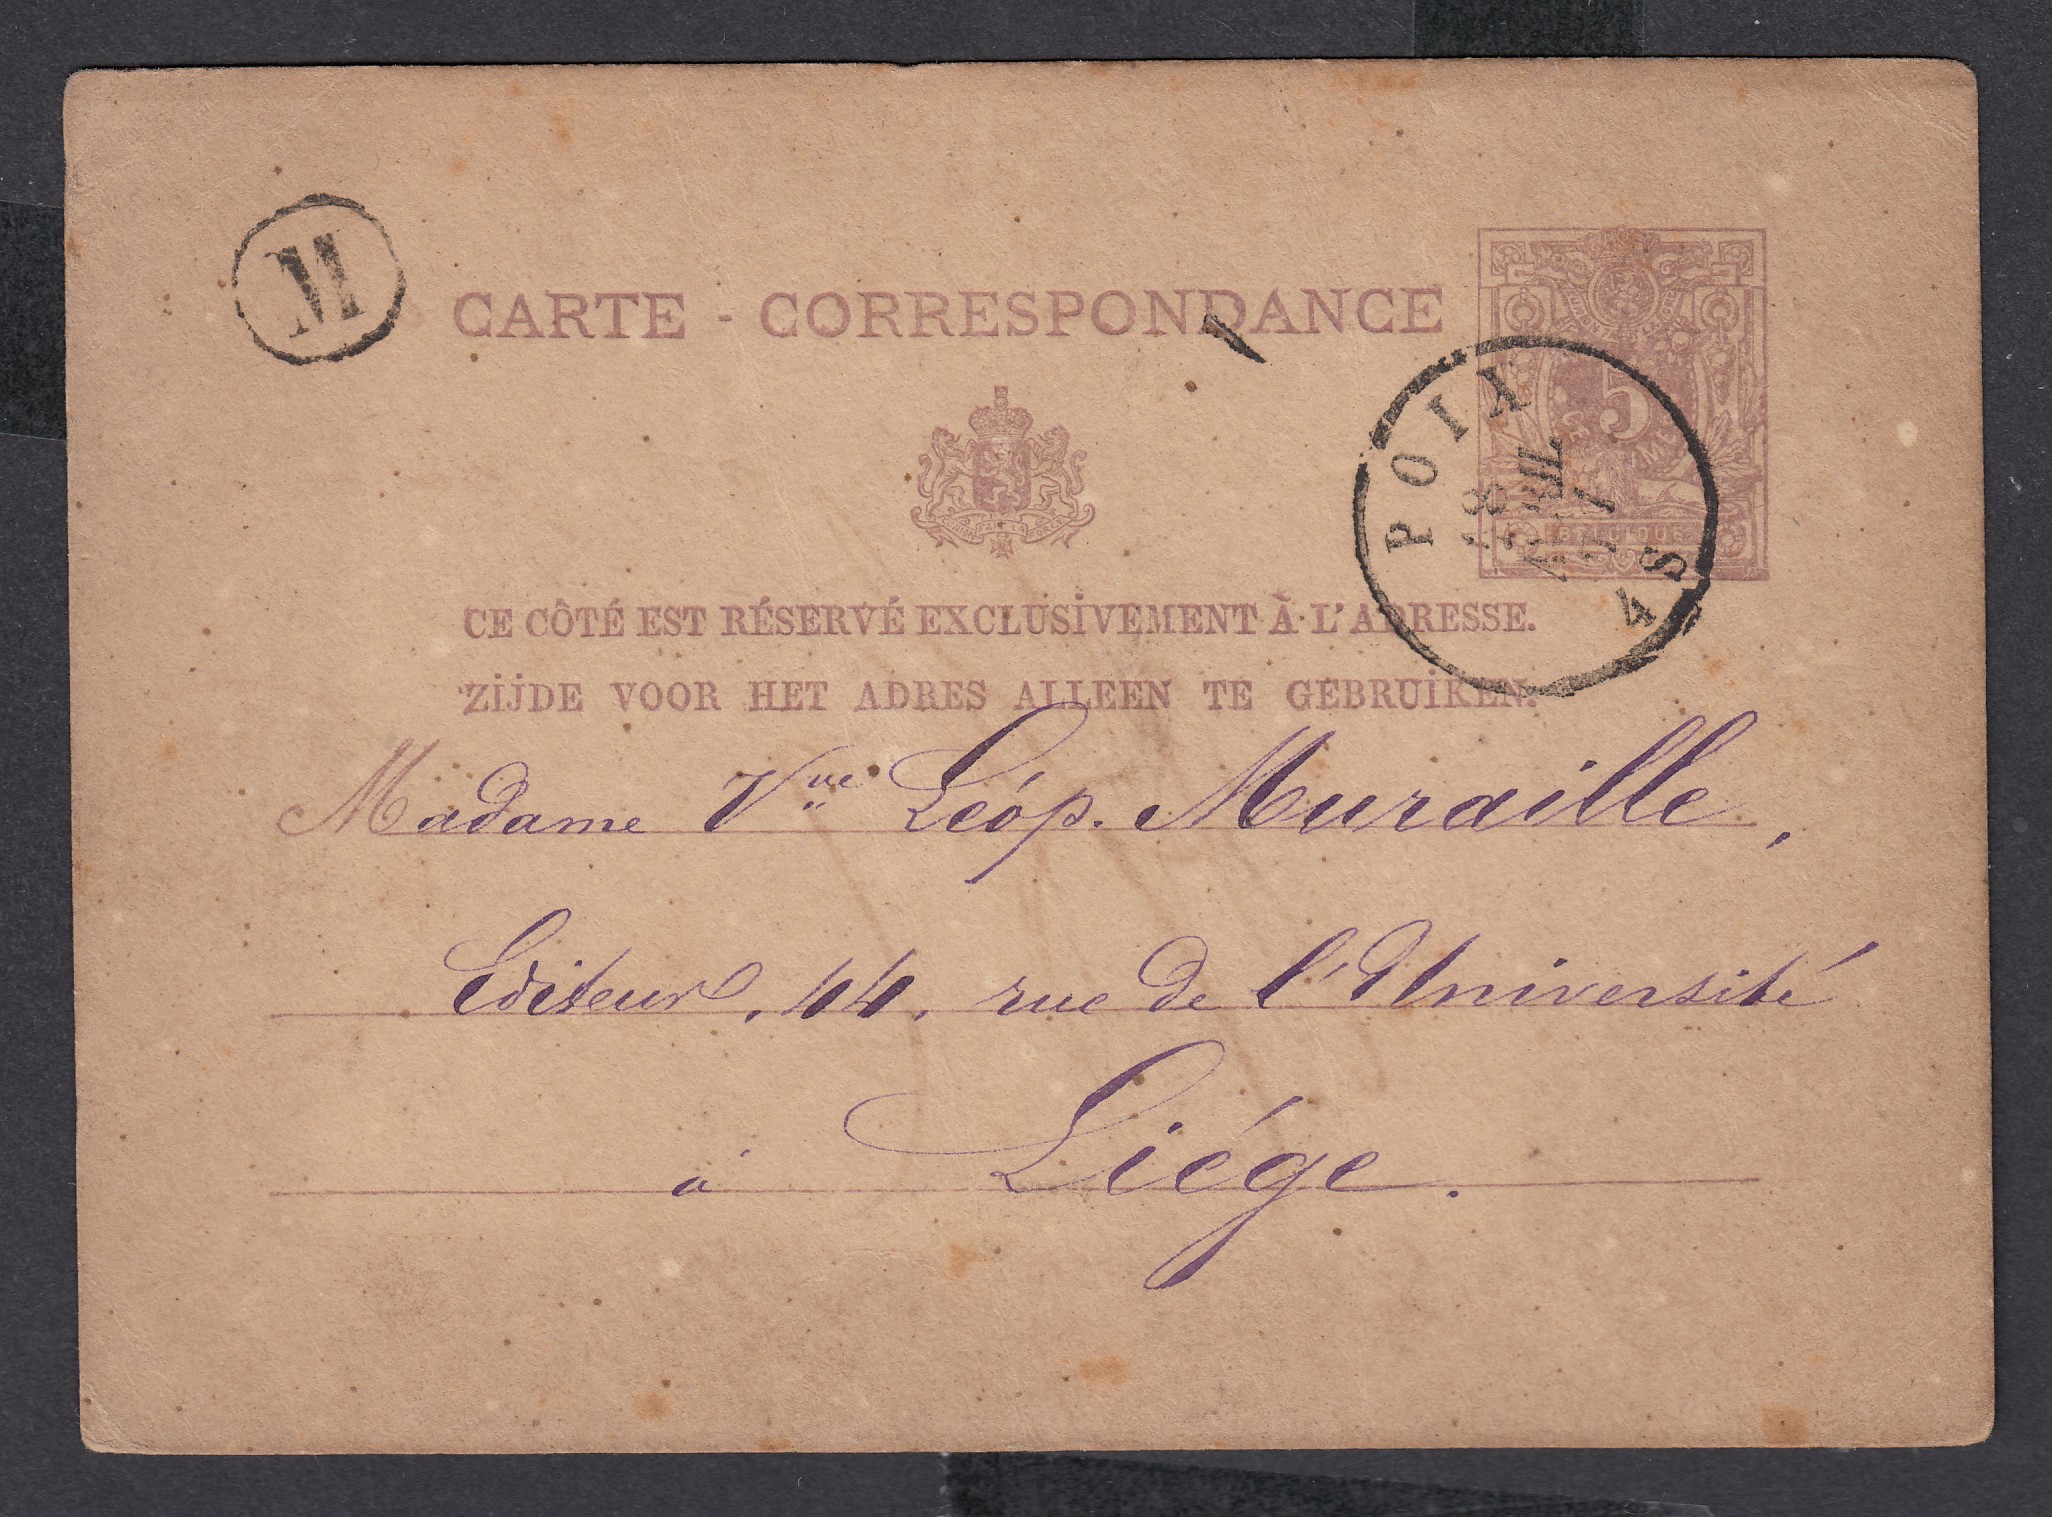 M
CARTE - CORRESPONDANCE
5
BELGIQUE
POIX
8
AVRIL
4 S
CE CÔTÉ EST RÉSERVÉ EXCLUSIVEMENT À L'ADRESSE.
ZIJDE VOOR HET ADRES ALLEEN TE GEBRUIKEN.
Madame Vve Léop. Muraille,
Editeur, 44, rue de l'Université
à Liége.